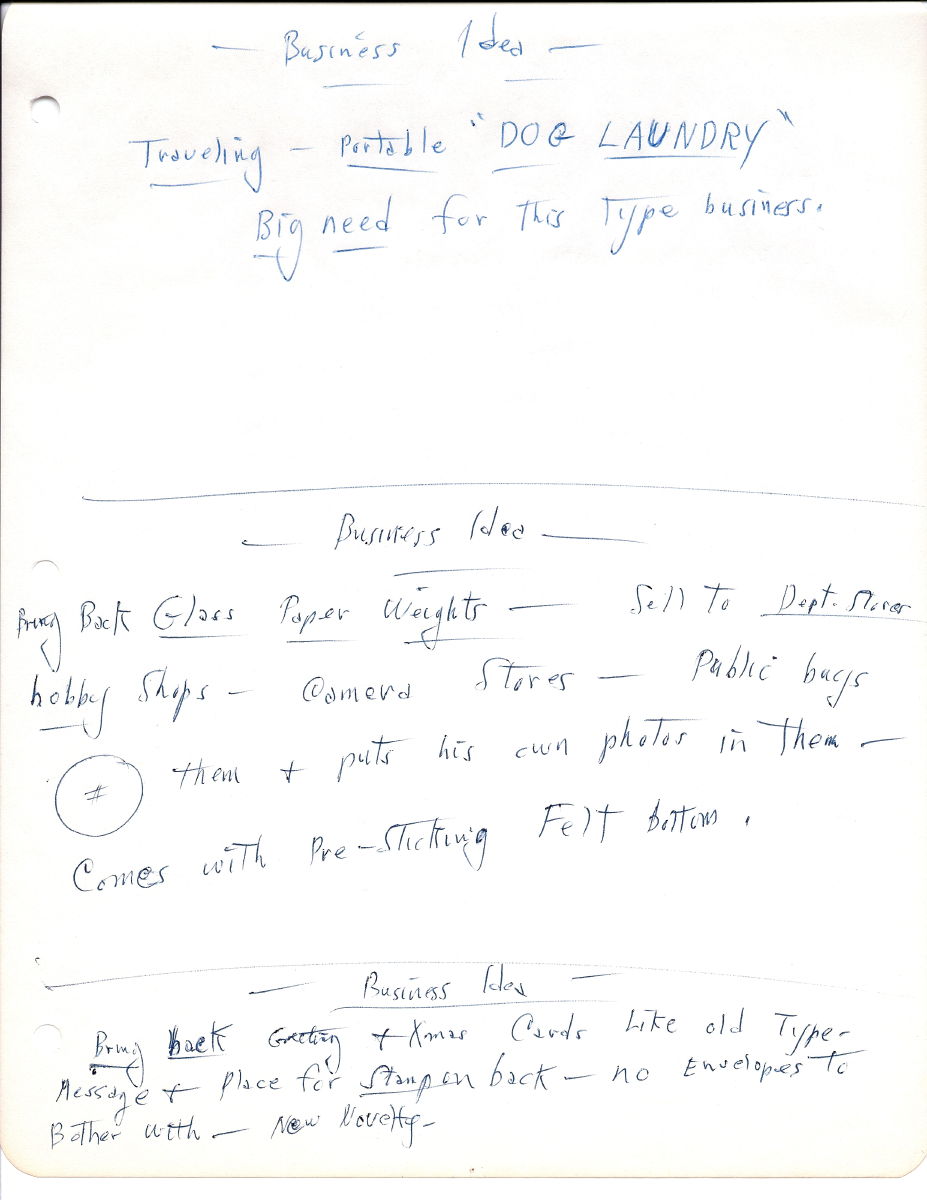 — Business Idea —
Traveling — Portable "DOG LAUNDRY"
Big need for This Type business.
— Business Idea —
Bring Back Glass Paper Weights — Sell To Dept. Stores
hobby Shops — Camera Stores — Public buys
# them + puts his own photos in Them —
Comes with Pre-Sticking Felt bottom.
— Business Idea —
Bring back Greeting + Xmas Cards Like old Type-
Message + Place for Stamp on back — no Envelopes To
Bother with — New Novelty-